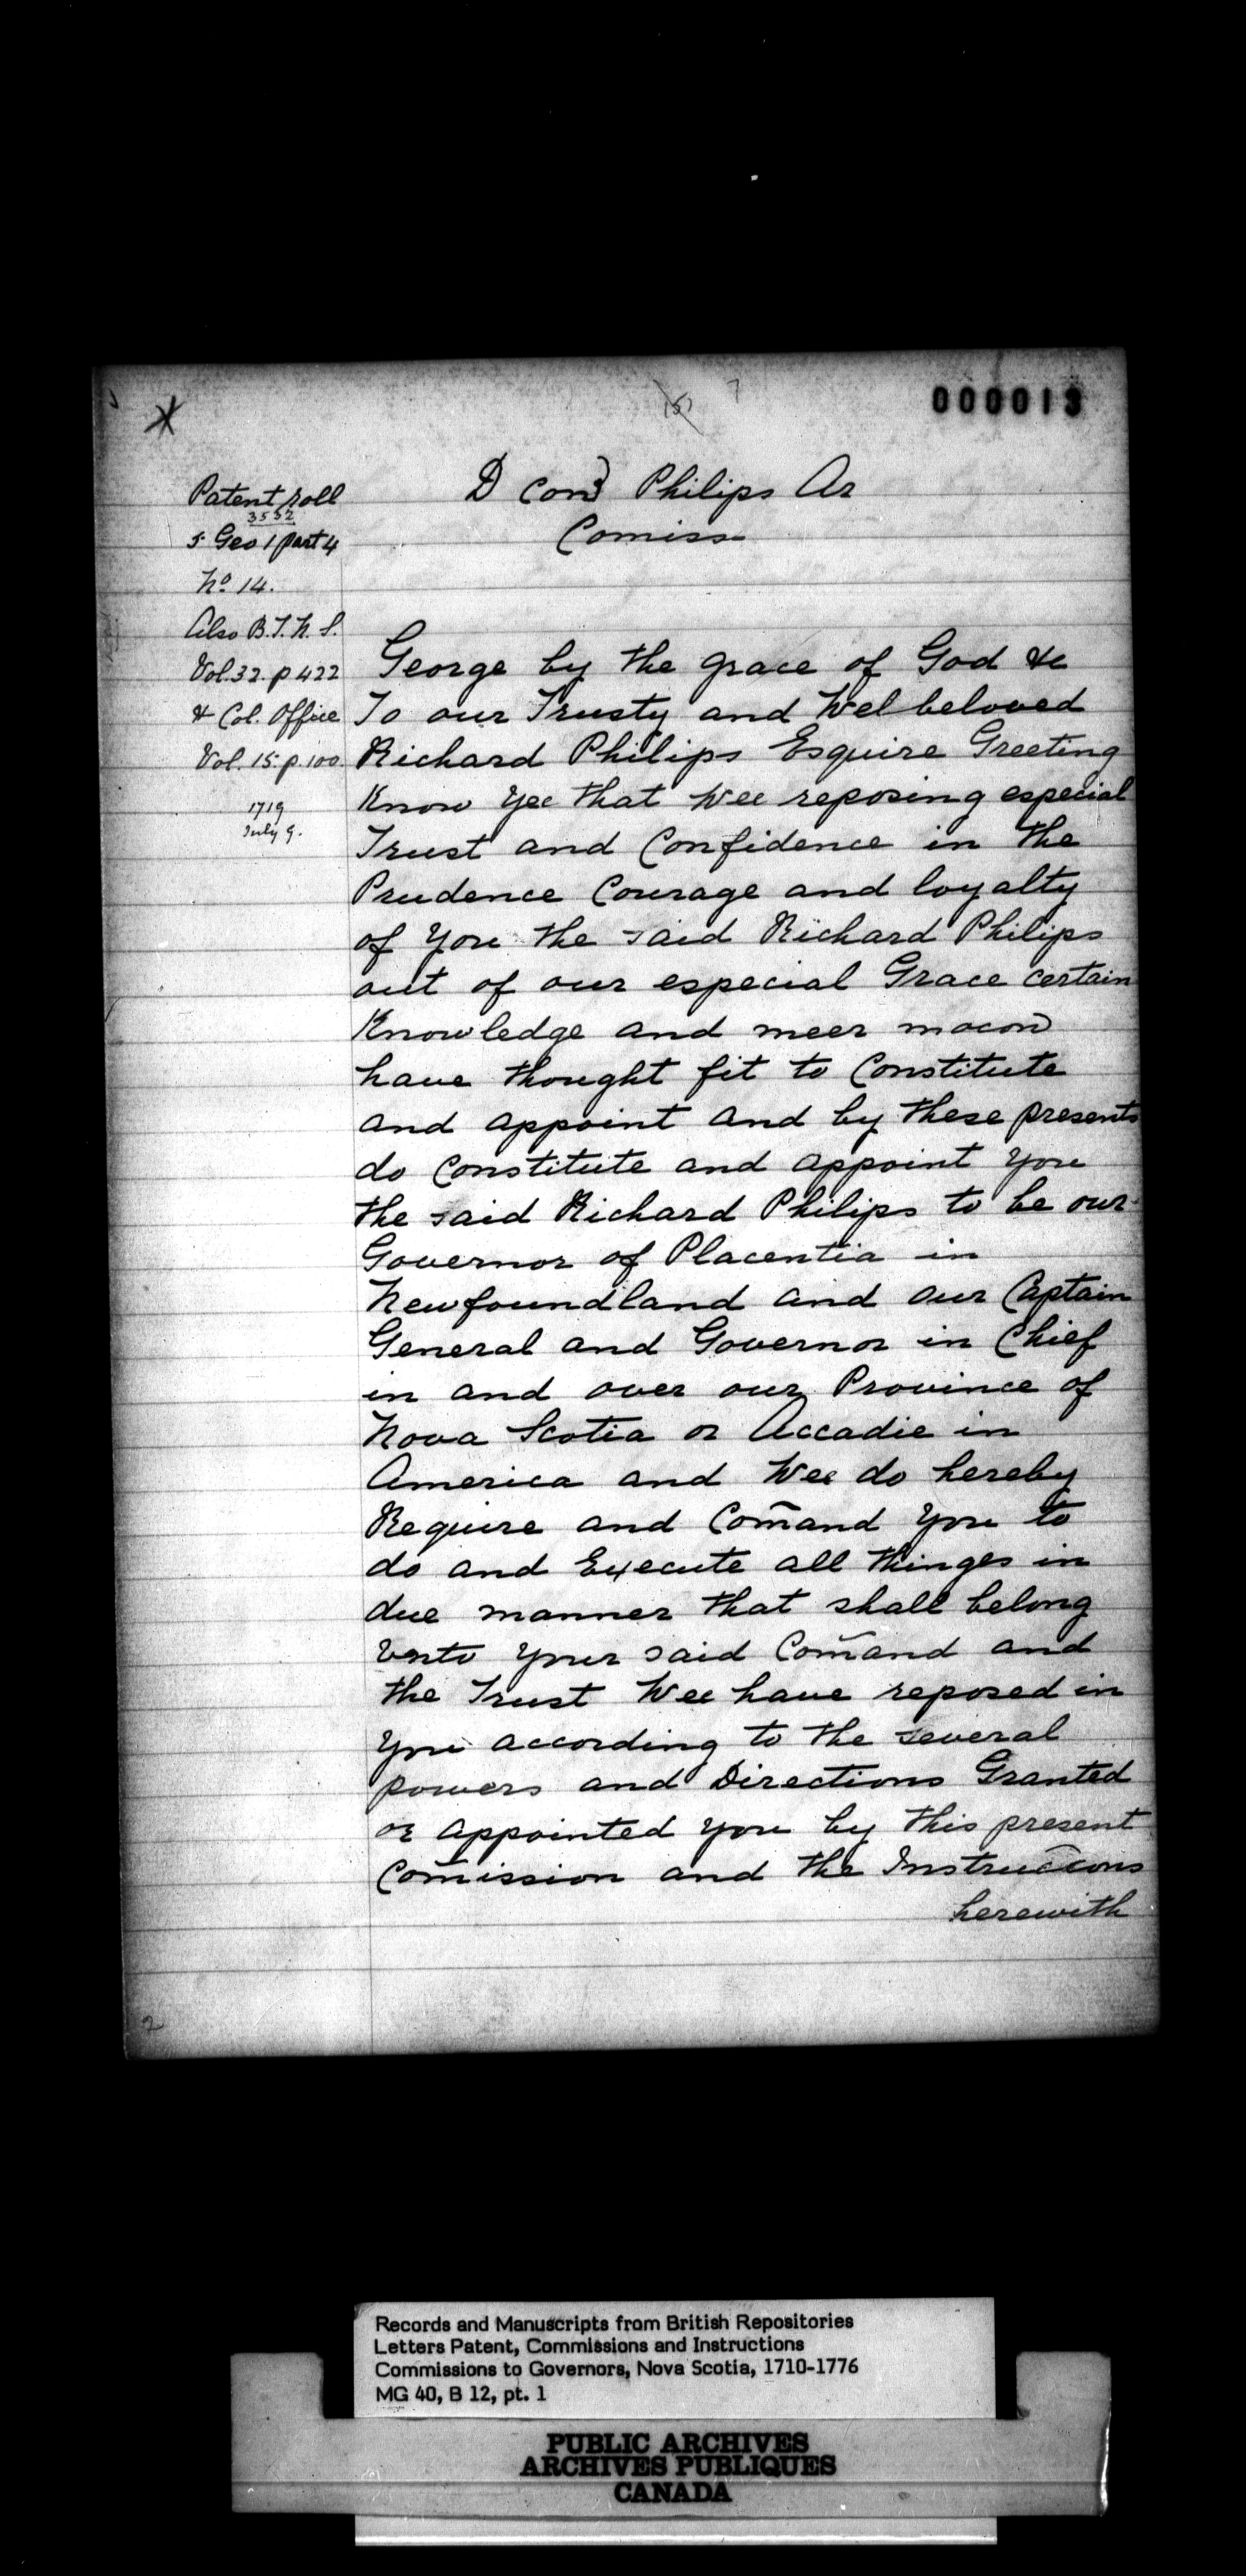 (5) 7
000013
Patent roll
3532
5 Geo 1 part 4
No. 14.
Also B.T.N.S.
Vol. 32. p 422
& Col. Office
Vol. 15. p. 100
1719
July 9.
D Con Philips Ar
Comiss
George by the grace of God &c
To our Trusty and Welbeloved
Richard Philips Esquire Greeting
Know Yee that Wee reposing especial
Trust and Confidence in the
Prudence Courage and loyalty
of You the said Richard Philips
out of our especial Grace certain
Knowledge and meer mocon
have thought fit to Constitute
and appoint and by these presents
do Constitute and appoint You
the said Richard Philips to be our
Governor of Placentia in
Newfoundland and our Captain
General and Governor in Chief
in and over our Province of
Nova Scotia or Accadie in
America and Wee do hereby
Require and Com̃and You to
do and Execute all thinges in
due manner that shall belong
Vnto Your said Com̃and and
the Trust Wee have reposed in
You according to the several
powers and Directions Granted
or appointed You by this present
Com̃ission and the Instruccons
herewith
2
Records and Manuscripts from British Repositories
Letters Patent, Commissions and Instructions
Commissions to Governors, Nova Scotia, 1710-1776
MG 40, B 12, pt. 1
PUBLIC ARCHIVES
ARCHIVES PUBLIQUES
CANADA